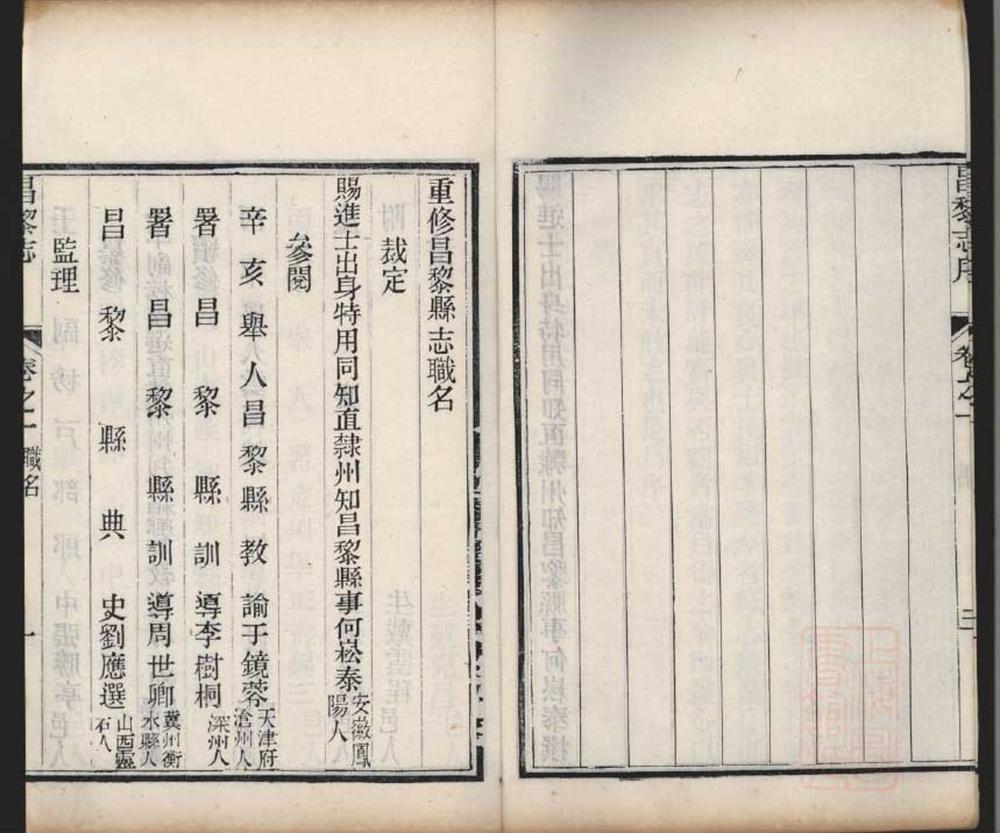 昌黎志序
卷之一
重修昌黎縣志職名
裁定
賜進士出身特用同知直隸州知昌黎縣事何崧泰安徽鳳陽人
參閱
辛亥舉人昌黎縣教諭于鏡蓉天津府滄州人
署昌黎縣訓導李樹桐深州人
署昌黎縣訓導周世卿冀州衡水縣人
昌黎縣典史劉應選山西靈石人
監理
昌黎志
卷之一
職名
一